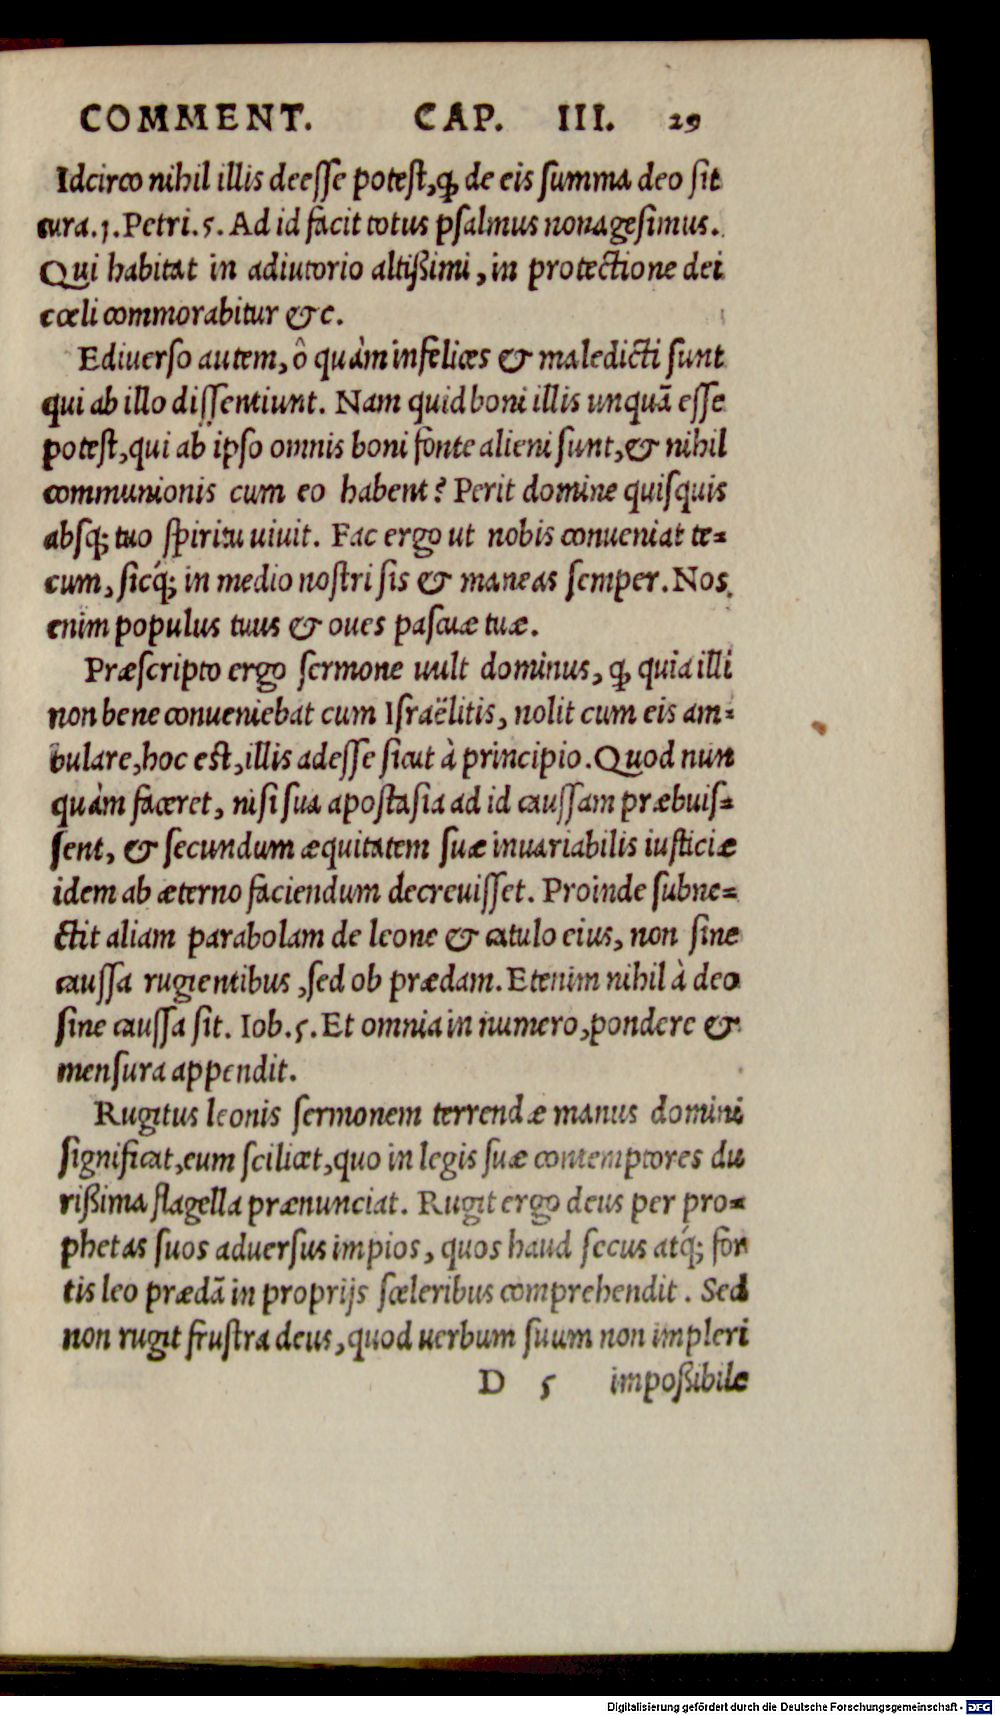 COMMENT. CAP. III. 29
Idcirco nihil illis deesse potest, ꝙ de eis summa deo sit
cura. 1. Petri. 5. Ad id facit totus psalmus nonagesimus.
Qui habitat in adiutorio altißimi, in protectione dei
cœli commorabitur &c.
Ediuerso autem, ô quàm infelices & maledicti sunt
qui ab illo dissentiunt. Nam quid boni illis unquã esse
potest, qui ab ipso omnis boni fonte alieni sunt, & nihil
communionis cum eo habent? Perit domine quisquis
absq; tuo spiritu uiuit. Fac ergo ut nobis conueniat te=
cum, sicq́; in medio nostri sis & maneas semper. Nos
enim populus tuus & oues pascuæ tuæ.
Præscripto ergo sermone uult dominus, ꝙ quia illi
non bene conueniebat cum Israëlitis, nolit cum eis am=
bulare, hoc est, illis adesse sicut à principio. Quod nun
quàm faceret, nisi sua apostasia ad id caussam præbuis=
sent, & secundum æquitatem suæ inuariabilis iusticiæ
idem ab æterno faciendum decreuisset. Proinde subne=
ctit aliam parabolam de leone & catulo eius, non sine
caussa rugientibus, sed ob prædam. Etenim nihil à deo
sine caussa sit. Iob. 5. Et omnia in numero, pondere &
mensura appendit.
Rugitus leonis sermonem terrendæ manus domini
significat, eum scilicet, quo in legis suæ contemptores du
rißima flagella prænunciat. Rugit ergo deus per pro=
phetas suos aduersus impios, quos haud secus atq́; for
tis leo prædã in proprijs sceleribus comprehendit. Sed
non rugit frustra deus, quod uerbum suum non impleri
D 5 impoßibile
Digitalisierung gefördert durch die Deutsche Forschungsgemeinschaft - DFG